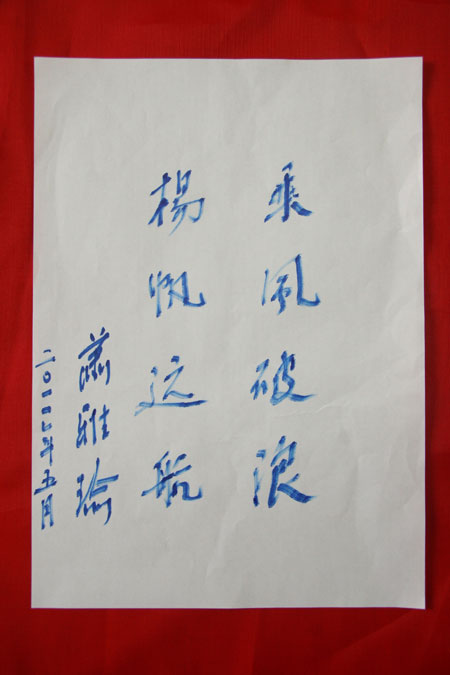 乘風破浪
楊帆远航
蕭雅瑜
二〇一一年五月